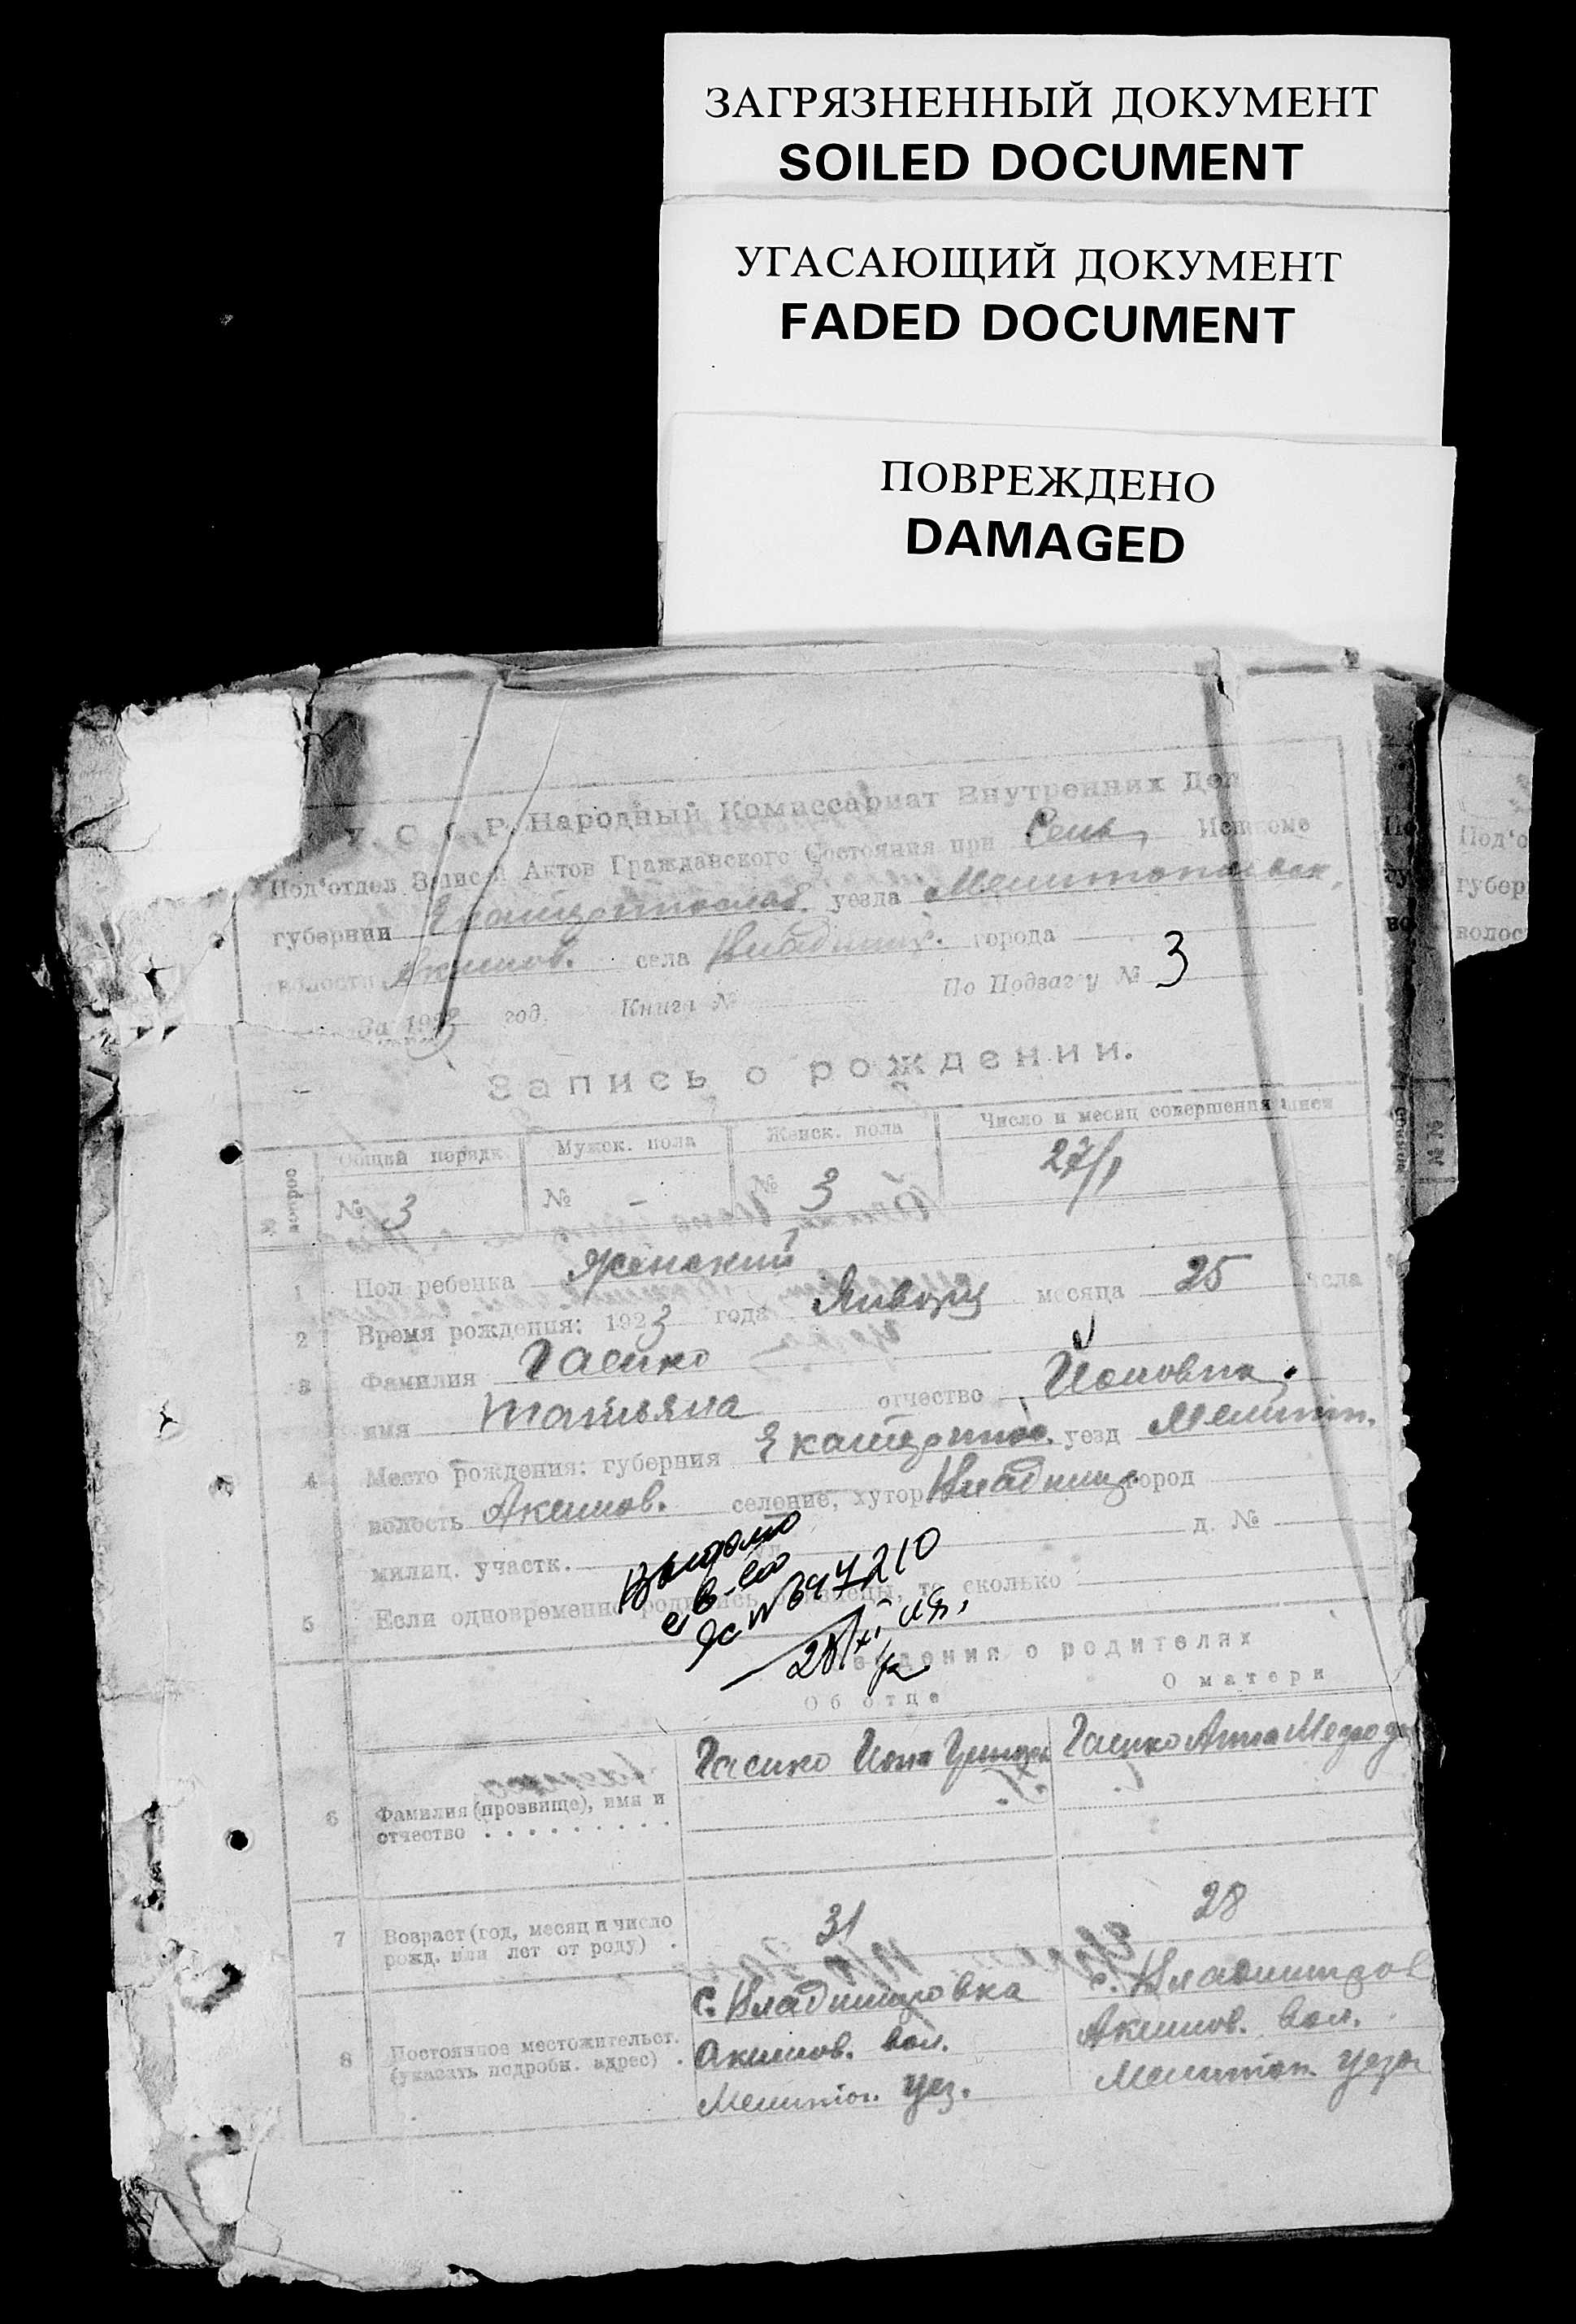 ЗАГРЯЗНЕННЫЙ ДОКУМЕНТ
SOILED DOCUMENT
УГАСАЮЩИЙ ДОКУМЕНТ
FADED DOCUMENT
ПОВРЕЖДЕНО
DAMAGED
У. С. С. Р. Народный Комиссариат Внутренних Дел
Под'отдел Записей Актов Гражданского Состояния при Сель
губернии Екатеринослав. уезда Мелитопольск.
волости Акимов. села Владимир. города
За 1923 год. Книга № По Подзагу № 3
Запись о рождении.
Общий порядк. Мужск. пола Женск. пола Число и месяц совершения
№ 3 № - № 3 27/I
1 Пол ребенка Женский
2 Время рождения: 1923 года Января месяца 25 числа
3 Фамилия Гасико
имя Татьяна отчество Ионовна.
4 Место рождения: губерния Екатеринос. уезд Мелитоп.
волость Акимов. селение, хутор Владимир город
милиц. участк. д. №
5 Если одновременно родились близнецы, то сколько
Выдано
св-во
№ 697210
28/XI
Сведения о родителях
Об отце О матери
6 Фамилия (прозвище), имя и отчество Гасико Иона Григорь Гасико Анна
7 Возраст (год, месяц и число рожд. или лет от роду) 31 28
8 Постоянное местожительст. (указать подробн. адрес) с. Владимировка с. Владимиров
Акимов. вол. Акимов. вол.
Мелитоп. уез. Мелитоп. уезда
Под'о
губер
волос